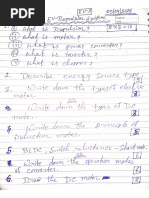 EV-3
EV-Propulsion System
① What is Propulsion?
② What is motor.
③ What is power converter?
④ What is Inverter?
⑤ What is choper?
2. Describe energy Source type.
3. Write down the types of electric motor.
4. Write down the types of DC motor.
5. Write down the Principle of Induction motor.
6. BLDC, Switch reluctance - Short note
7. Write down the operation motor of converter.
8. Draw the DC motor.